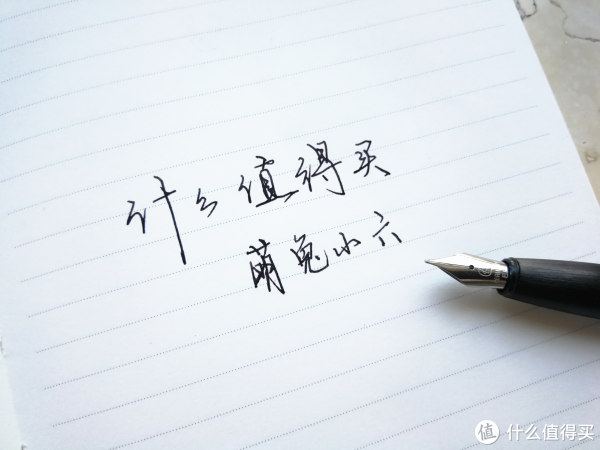 什么值得买
萌兔小六
值 什么值得买